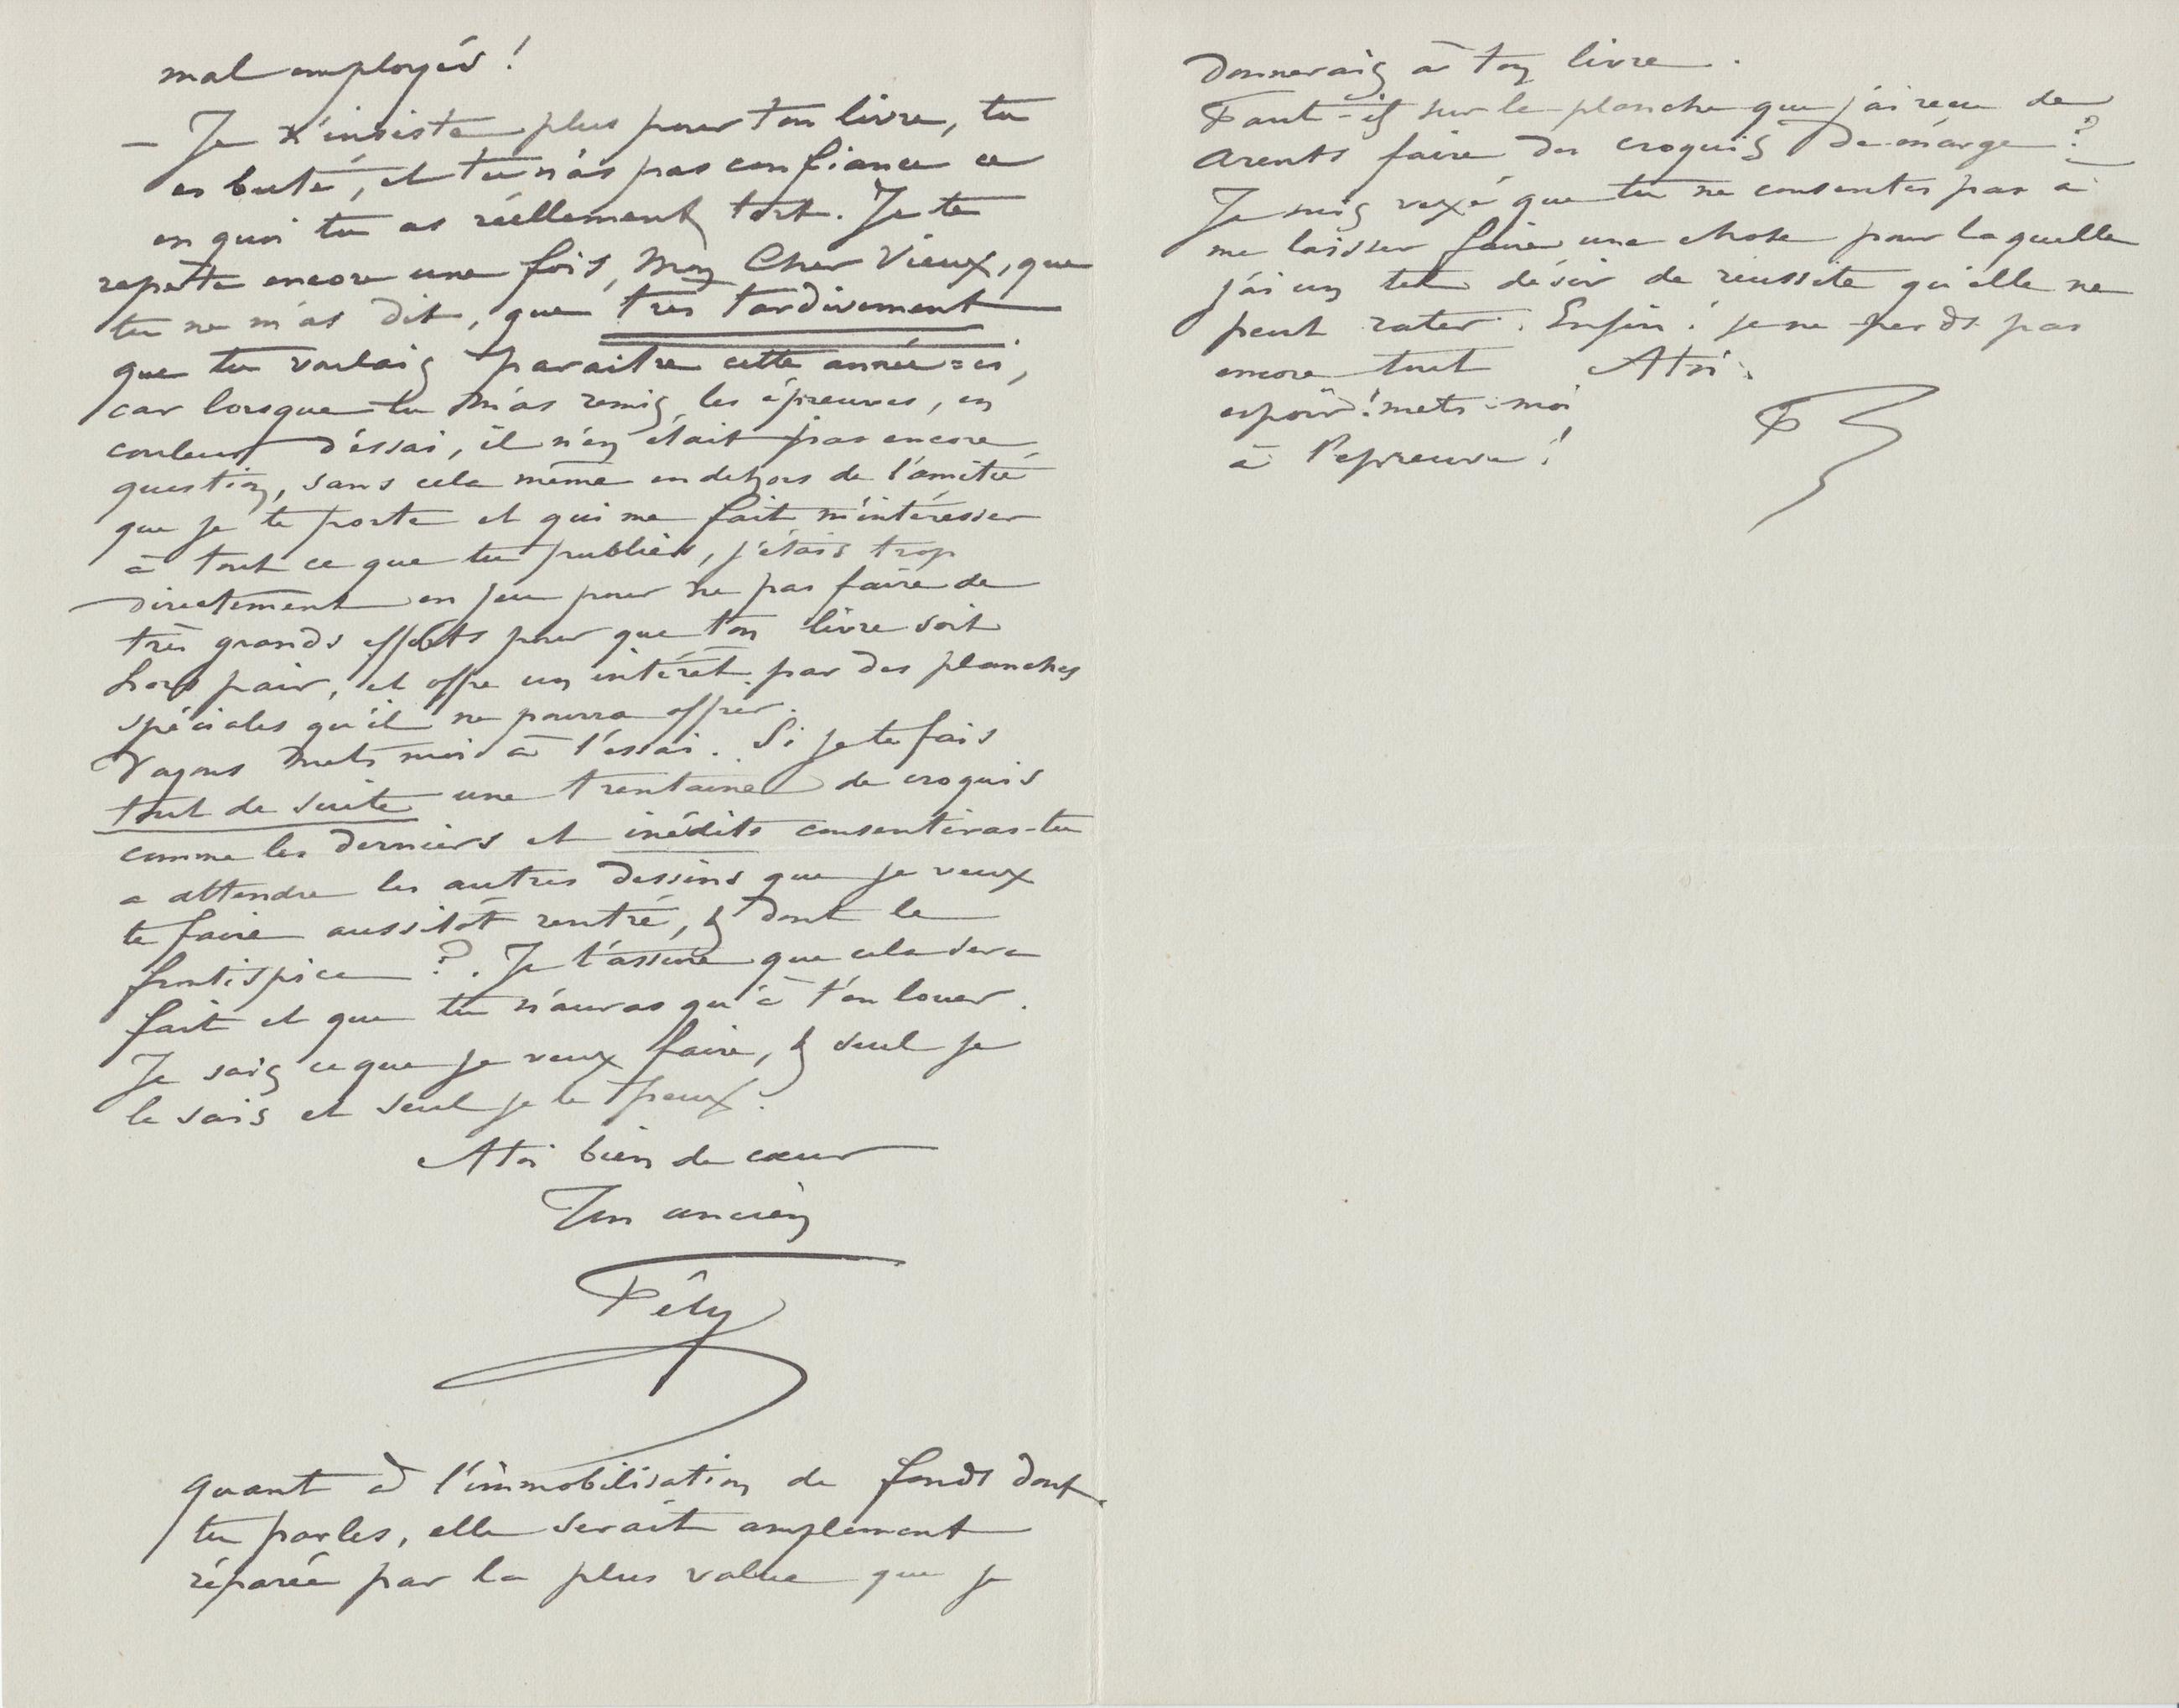 mal employés !
— Je n'insiste plus pour ton livre, tu
es buté, et tu n'as pas confiance ce
en quoi tu as réellement tort. Je te
repette encore une fois, Mon Cher Vieux, que
tu ne m'as dit, que tres tardivement
que tu voulais paraitre cette année=ci,
car lorsque tu m'as remis les épreuves, en
couleurs d'éssai, il n'en était pas encore
question, sans cela même en dehors de l'amitié
que je te porte et qui me fait m'intéresser
à tout ce que tu publies, j'étais trop
directement en jeu pour ne pas faire de
très grands efforts pour que ton livre soit
hors pair, et offre un intérêt par des planches
spéciales qu'il ne pourra offrir.
Voyons mets moi à l'essai. Si je te fais
tout de suite une trentaine de croquis
comme les derniers et inédits consentiras-tu
a attendre les autres dessins que je veux
te faire aussitôt rentré, & dont le
frontispice ?. Je t'assure que cela sera
fait et que tu n'auras qu'à t'en louer.
Je sais ce que je veux faire, & seul je
le sais et seul je le peux.
A toi bien de cœur
Ton ancien
Fély
quant à l'immobilisation de fonds dont
tu parles, elle serait amplement
réparée par la plus value que je
donnerais à ton livre.
Faut-il sur la planche que j'ai recu de
Arents faire des croquis de marge ?
Je suis vexé que tu ne consentes pas à
me laisser faire une chose pour laquelle
j'ai un tel désir de réussite qu'elle ne
peut rater. Enfin ! je ne perds pas
encore tout A toi.
espoir ! mets-moi
à l'epreuve !
F